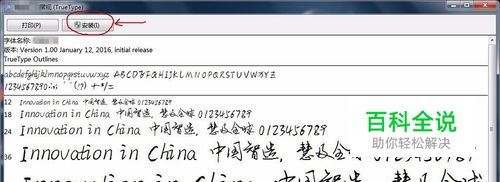 常规 (TrueType)
打印(P) 安装(I)
字体名称:
版本: Version 1.00 January 12, 2016, initial release
TrueType Outlines
abcdefghijklmnopqrstuvwxyz ABCDEFGHIJKLMNOPQRSTUVWXYZ
1234567890
12 Innovation in China 中国智造，慧及全球 0123456789
18 Innovation in China 中国智造，慧及全球 0123456789
24 Innovation in China 中国智造，慧及全球 0123456789
36 Innovation in China 中国智造，慧及全
Innovation in China 中国智造
百科全说
助你轻松解决